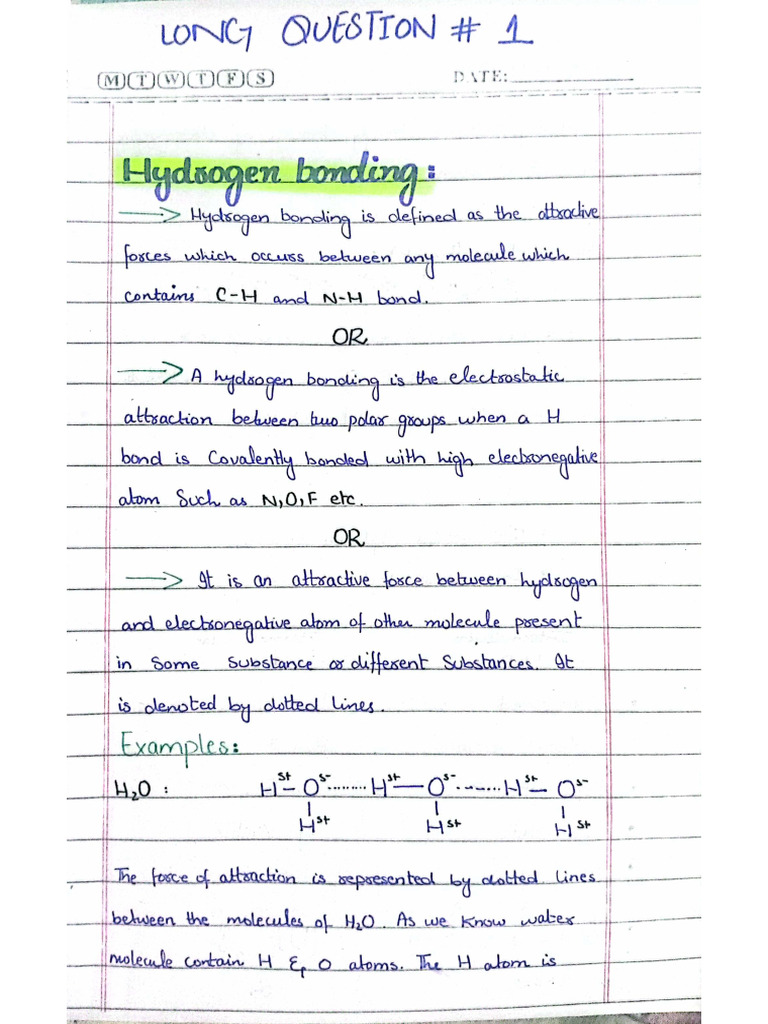 LONG QUESTION # 1
M T W T F S DATE:
Hydrogen bonding:
→ Hydrogen bonding is defined as the attractive
forces which occurs between any molecule which
contains C-H and N-H bond.
OR
→ A hydrogen bonding is the electrostatic
attraction between two polar groups when a H
bond is Covalently bonded with high electronegative
atom Such as N,O,F etc.
OR
→ It is an attractive force between hydrogen
and electronegative atom of other molecule present
in Some Substance or different Substances. It
is denoted by dotted lines.
Examples:
H₂O : H^δ+ – O^δ- ........ H^δ+ — O^δ- ........ H^δ+ – O^δ-
H^δ+ H^δ+ H^δ+
The force of attraction is represented by dotted lines
between the molecules of H₂O. As we know water
molecule contain H & O atoms. The H atom is